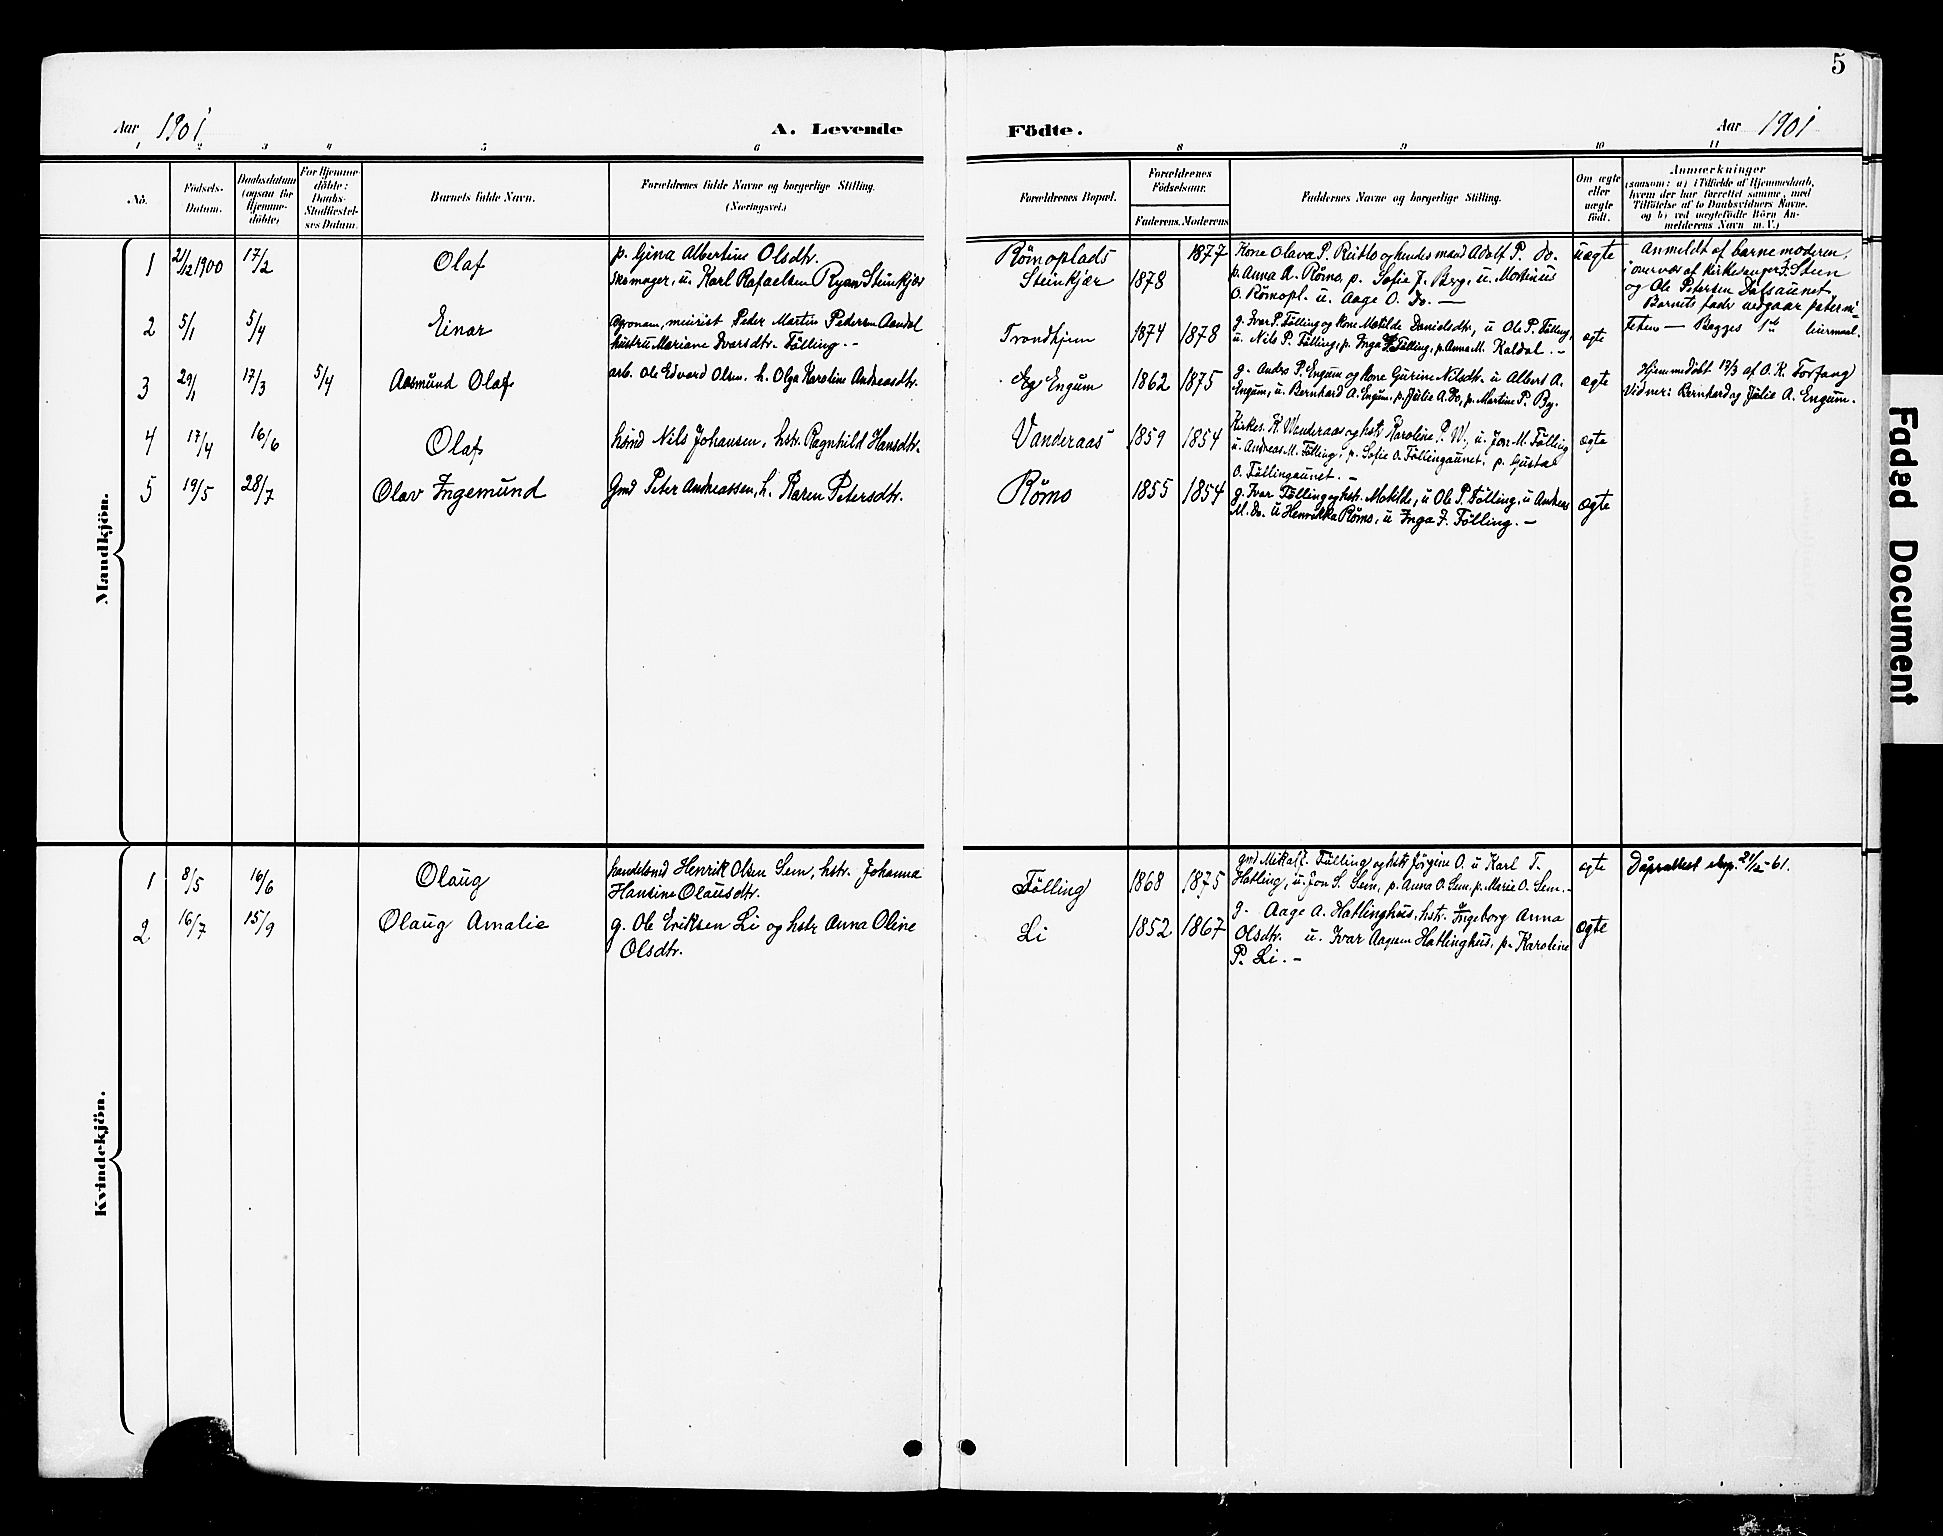 5
Aar 1901
A. Levende
Födte.
Aar 1901
1 2 3 4 5 6 8 9 10 11
No.
Födsels-
Datum.
Daabsdatum
(ogsaa for
Hjemme-
döbte)
For Hjemme-
döbte:
Daabs-
Stadfæstel-
ses Datum.
Barnets fulde Navn.
Forældrenes fulde Navne og borgerlige Stilling.
(Næringsvei.)
Forældrenes Bopæl.
Forældrenes
Födselsaar.
Faderens. Moderens.
Faddernes Navne og borgerlige Stilling.
Om ægte
eller
uægte
født.
Anmærkninger
(saasom: a) i Tilfælde af Hjemmedaab,
hvem der har forrettet samme, med
Tilföielse af to Daabsvidners Navne,
og b) ved uægtefödte Börn An-
melderens Navn m. V.)
Mandkjön.
1 21/12 1900 17/2 Olaf
p. Gina Albertine Olsdtr.
Skomager, u. Karl Rafaelsen Ryan Steinkjær
Römoplads
Steinkjær
1878 1877
Kone Olava P. Reitlo og hendes mand Adolf P. Do.
p. Anna A. Römo, p. Sofie J. Berg, u. Mortinus
O. Römopl. u. Aage O. Do. —
uægte
Anmeldt af barnemoderen,
i overvær af kirkesanger J. Steen
og Ole Petersen Dalsaunet
Barnets fader vedgaar paterni-
teten — Begges 1ste leiermaal.
2 5/1 5/4 Einar
Agronom, meierist Peder Martin Pedersen Aandal
hustru Mariane Ivarsdtr. Fölling. —
Trondhjem
1874 1878
g. Ivar P. Fölling og kone Matilde Danielsdtr, u Ole P. Fölling,
u. Nils P. Fölling, p. Inga J. Fölling, p. Anna M. Kaldal. —
ægte
3 29/1 17/3 5/4 Aasmund Olaf
arb. Ole Edvard Olsen. h. Olga Karoline Andreasdtr.
Eg Engum
1862 1875
g. Andrs P. Engum og kone Gurine Nilsdtr. u Albert A.
Engum, u. Bernhard A. Engum, p. Julie A. Do, p. Martine P. By.
ægte
Hjemmedöbt 17/3 af O. K. Forfang
Vidner: Bernhard og Julie A. Engum.
4 17/4 16/6 Olaf
hsmd Nils Johansen, hstr. Ragnhild Hansdtr.
Vanderaas
1859 1854
Kirkes. K Wanderaas og hstr Karoline P. W., u. Jon M. Fölling
u. Andreas M. Fölling, p. Sofie O. Föllingaunet, p. Gustav
O. Föllingaunet. —
ægte
5 19/5 28/7 Olav Ingemund
Gmd Peter Andreassen, h. Karen Petersdtr.
Römo
1855 1854
g. Ivar Fölling og hstr. Matilde, u Ole P. Fölling, u Andreas
M. Do. u Henrikka Römo, u Inga J. Fölling. —
ægte
Kvindekjön.
1 8/5 16/6 Olaug
handelsmd Henrik Olsen Sem, hstr. Johanna
Hansine Olausdtr.
Fölling
1868 1875
gmd Mikal J. Fölling og hstr Jörgine O. u Karl T.
Hatling, u. Jon S. Sem, p. Anna O. Sem, p. Marie O. Sem. —
ægte
Dåpsattest eksp. 21/12-61.
2 16/7 15/9 Olaug Amalie
g. Ole Eriksen Li og hstr Anna Oline
Olsdtr.
Li
1852 1867
g. Aage A. Hatlinghus, hstr. Ingeborg Anna
Olsdtr. u. Ivar Aagesen Hatlinghus, p. Karoline
P. Li. —
ægte
Faded Document